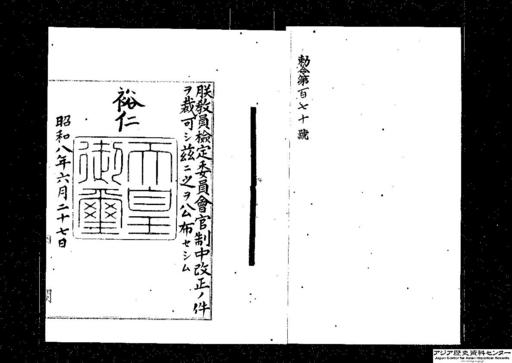 勅令第百七十號
朕教員檢定委員會官制中改正ノ件
ヲ裁可シ茲ニ之ヲ公布セシム
裕仁
天皇
御璽
昭和八年六月二十七日
アジア歴史資料センター
Japan Center for Asian Historical Records